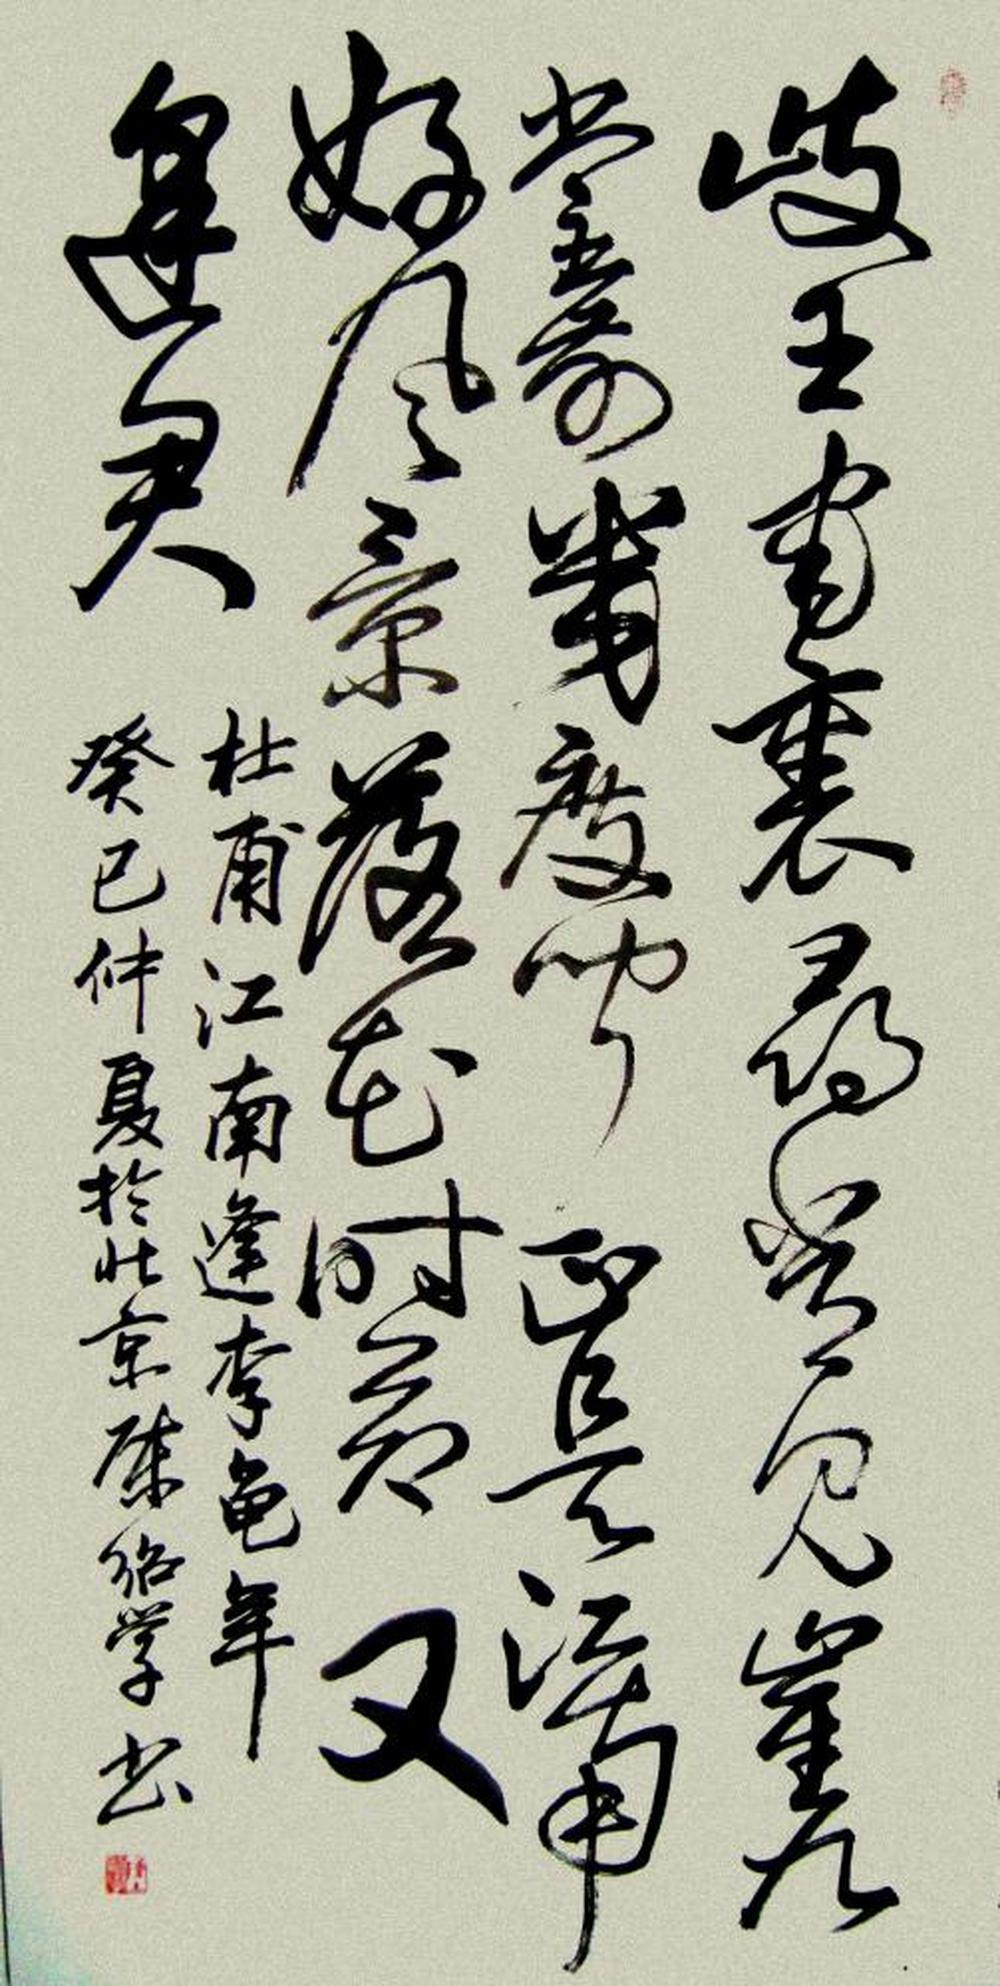 岐王宅裏尋常見崔九
堂前幾度聞正是江南
好风景落花时節又
逢君
杜甫江南逢李龟年
癸巳仲夏於北京陈绍学书